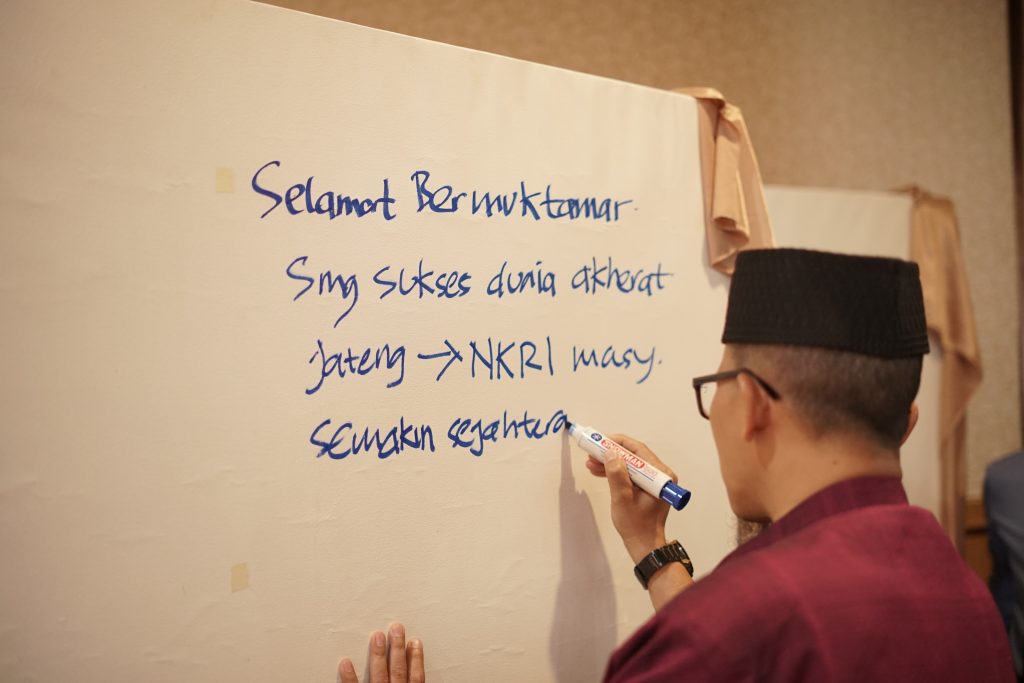 Selamat Bermuktamar.
Smg sukses dunia akherat
jateng → NKRI masy.
semakin sejahtera
SNOWMAN